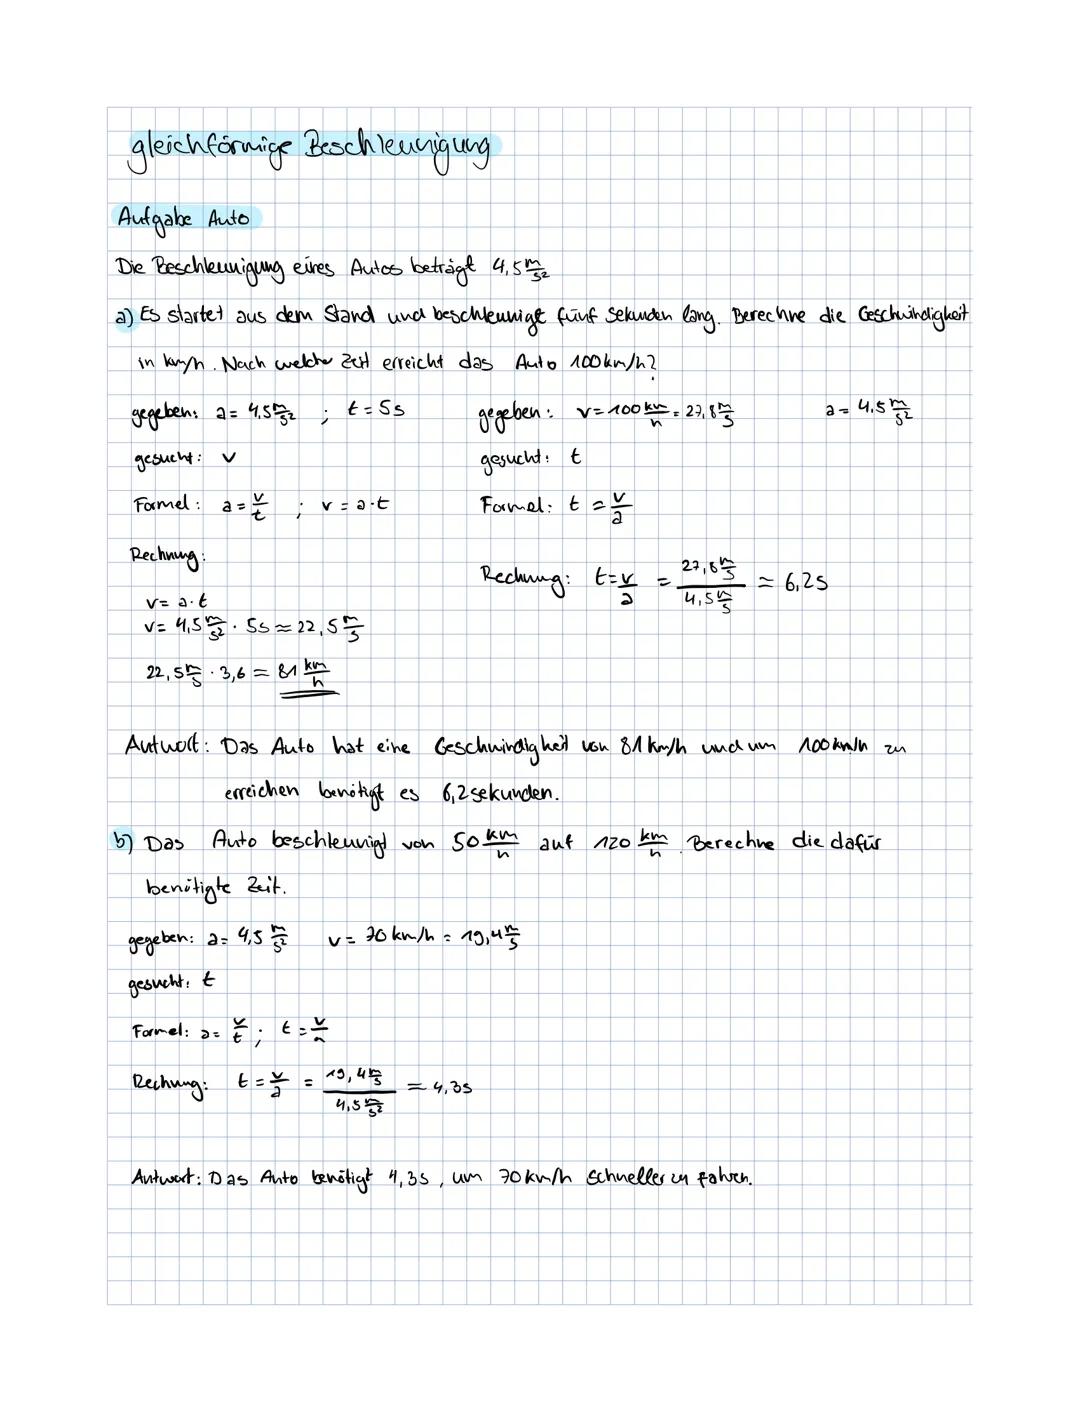 gleichförmige Beschleunigung
Aufgabe Auto
Die Beschleunigung eines Autos beträgt 4,5 m/s²
a) Es startet aus dem Stand und beschleunigt fünf Sekunden lang. Berechne die Geschwindigkeit
in km/h. Nach welcher Zeit erreicht das Auto 100 km/h?
gegeben: a = 4,5 m/s² ; t = 5s
gesucht: v
Formel: a = v/t ; v = a·t
Rechnung:
v = a·t
v = 4,5 m/s² · 5s ≈ 22,5 m/s
22,5 m/s · 3,6 = 81 km/h
gegeben: v = 100 km/h = 27,8 m/s a = 4,5 m/s²
gesucht: t
Formel: t = v/a
Rechnung: t = v/a = 27,8 m/s / 4,5 m/s ≈ 6,2s
Antwort: Das Auto hat eine Geschwindigkeit von 81 km/h und um 100 km/h zu
erreichen benötigt es 6,2 sekunden.
b) Das Auto beschleunigt von 50 km/h auf 120 km/h. Berechne die dafür
benötigte Zeit.
gegeben: a = 4,5 m/s² v = 70 km/h = 19,4 m/s
gesucht: t
Formel: a = v/t ; t = v/a
Rechnung: t = v/a = 19,4 m/s / 4,5 m/s² ≈ 4,3s
Antwort: Das Auto benötigt 4,3s, um 70 km/h schneller zu fahren.